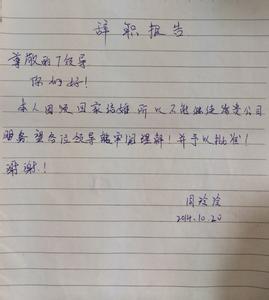 辞职报告
尊敬的领导
你们好！
本人因须回家结婚所以不能继续为贵公司
服务，望各位领导能够理解！并予以批准！
谢谢！
周玲玲
2014.10.20